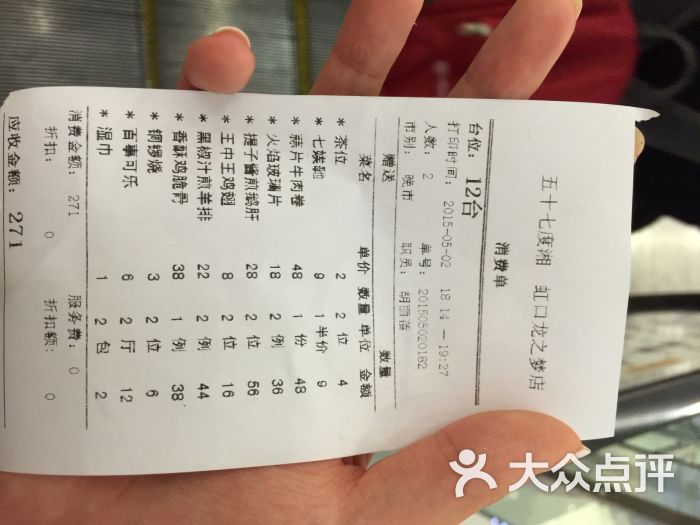 五十七度湘 虹口龙之梦店
消费单
台位: 12台
打印时间: 2015-05-02 18:14 —19:27
人数: 2 单号: 2015050201 82
市别: 晚市 职员: 胡丽蓓
赠送 数量
菜名 单价 数量 单位 金额
* 茶位 2 2 位 4
* 七埃勉 9 1 半价 9
* 蒜片牛肉卷 48 1 份 48
* 火焰玻璃片 18 2 例 36
* 提子酱煎鹅肝 28 2 位 56
* 王中王鸡翅 8 2 位 16
* 黑椒汁煎羊排 22 2 例 44
* 香酥鸡脆骨 38 1 例 38
* 铜锣烧 3 2 位 6
* 百事可乐 6 2 厅 12
* 湿巾 1 2 包 2
消费金额: 271 服务费: 0
折扣: 0 折扣额: 0
应收金额: 271
大众点评